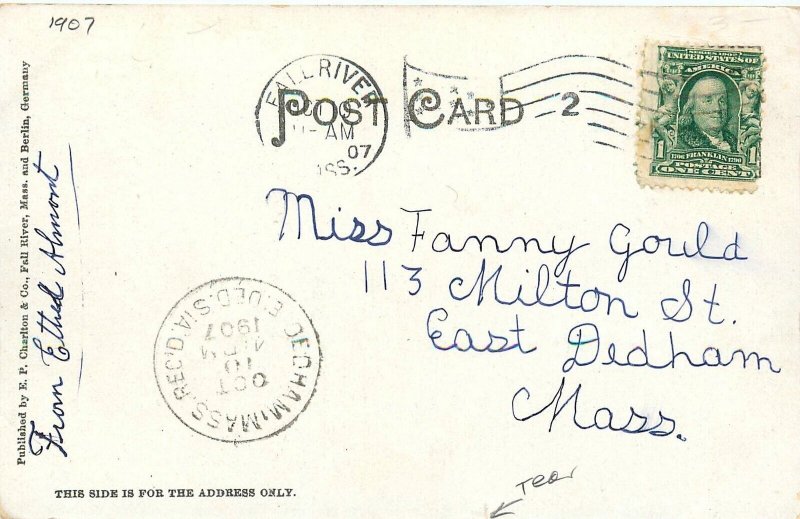 1907
FALL RIVER
11-AM
07
POST CARD 2
SERIES 1902
UNITED STATES OF
AMERICA
1 1706 FRANKLIN 1790 1
POSTAGE
ONE CENT
Miss Fanny Gould
113 Milton St.
East Dedham
Mass.
Published by E. P. Charlton & Co., Fall River, Mass. and Berlin, Germany
From Ethel Almont
DEDHAM, MASS. REC'D.
OCT
10
4 PM
1907
THIS SIDE IS FOR THE ADDRESS ONLY.
Tear